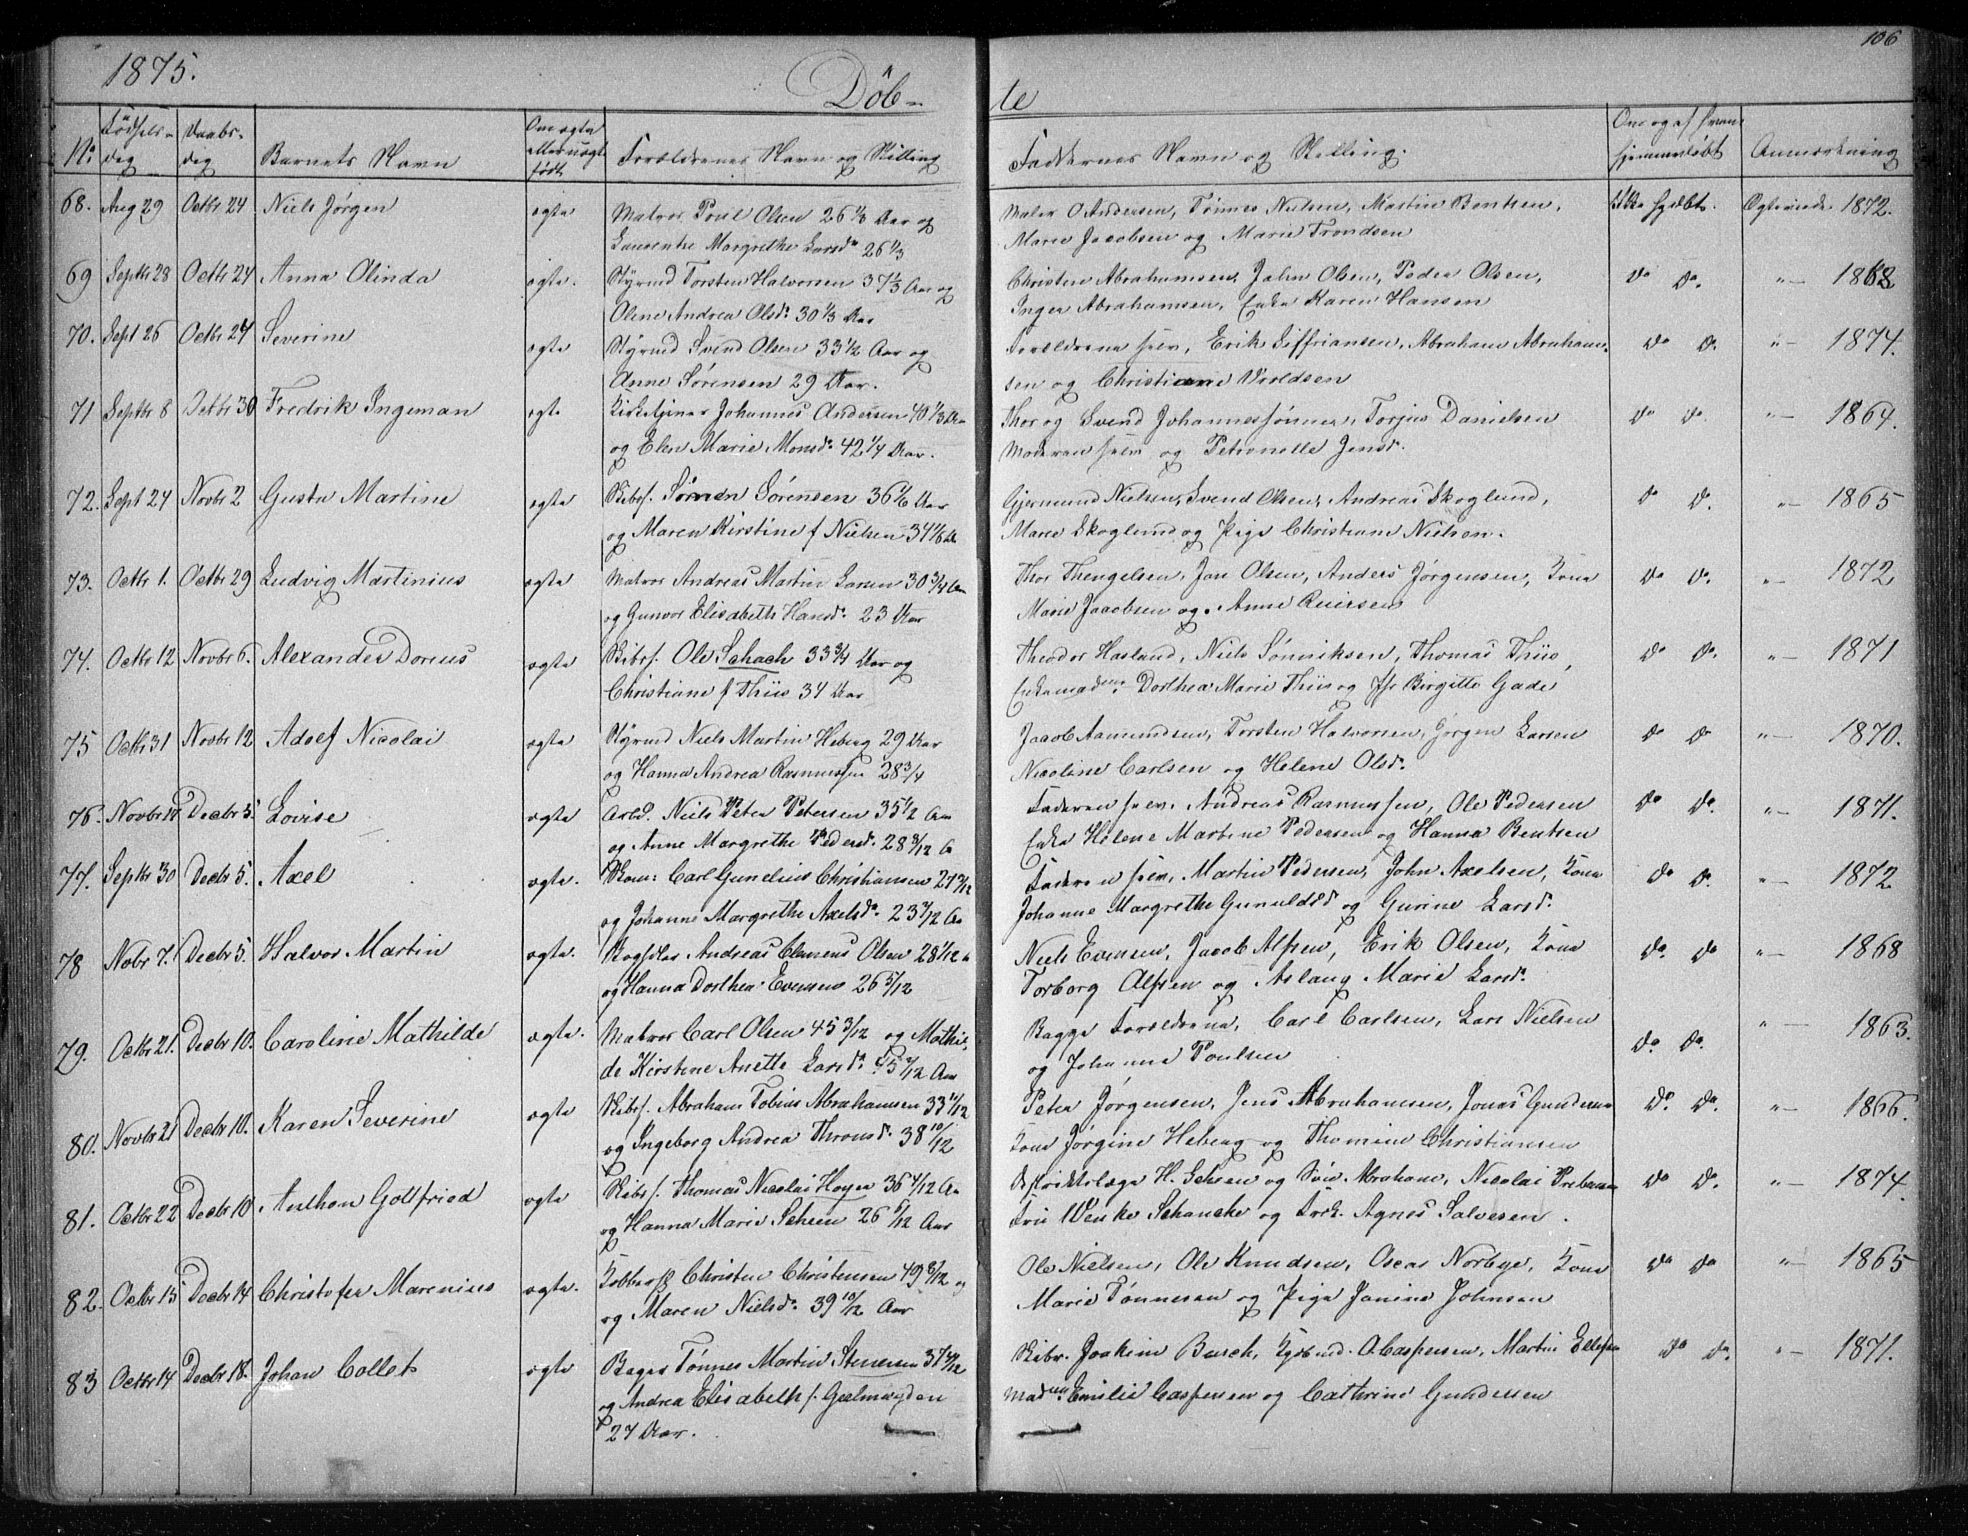 1875.
Döb-
te
106
No
Födsels-
dag
Daabs-
dag
Barnets Navn
Om ægte
eller uægte
födt
Forældrenes Navn og Stilling
Faddernes Navn og Stilling.
hjemmedöbt
Anmærkning
68. Aug 29 Octbr 24 Niels Jörgen ægte Matros Poul Olsen 26 1/3 Aar og Mator O Andersen, Tönnes Nielsen, Martin Bentsen, Ikke hjdöbt. Ægteviede 1872.
Laurentse Margrethe Larsdr 26 1/3 Marie Jacobsen og Marie Trondsen
69 Septbr 28 Octbr 24 Anna Olinda ægte. Styrmd Torsten Halvorsen 37 1/3 Aar og Christen Abrahamsen, John Olsen, Peder Olsen, Do Do. "— 1868
Oline Andrea Olsdr 30 1/3 Aar Inger Abrahamsen, Enke Karen Hansen
70. Sept 26 Octbr 24 Severine ægte Styrmd Svend Olsen 33 1/2 Aar og Forældrene selv, Erik Siffriansen, Abraham Abraham- Do Do. "— 1874.
Anne Sörensen 29 Aar. sen og Christiane Wroldsen
71 Septbr 8 Octbr 30 Fredrik Ingeman ægte Kirketjener Johannes Andersen 40 1/3 Aar Thor og Svend Johannessönner, Torjus Danielsen Do Do. "— 1864.
og Elen Marie Monsdr 42 1/4 Aar. Moderen selv og Petronelle Jensdr.
72. Sept 24 Novbr 2 Gusta Martine ægte Skibsf. Sören Sörensen 36 1/6 Aar Gjermund Nielsen, Svend Olsen, Andreas Skoglund, Do Do. "— 1865
og Maren Kirstine f Nielsen 34 1/6 Aar Marie Skoglund og Pige Christiane Nielsen.
73. Octbr 1. Octbr 29 Ludvig Martinius ægte Matros Andreas Martin Larsen 30 3/4 Aar Thor Thengelsen, Jon Olsen, Anders Jörgensen, Kone Do Do. "— 1872
og Gunvor Elisabeth Hansdr. 23 Aar Marie Jacobsen og Anne Reiersen
74. Octbr 12 Novbr 6. Alexander Dorius ægte Skibsf. Ole Schach 33 3/4 Aar og Theodor Hasland, Niels Sönniksen, Thomas Thiis, Do Do. "— 1871
Christiane f Thiis 34 Aar Enkemadme Dorthea Marie Thiis og Jfr Birgitte Gade
75 Octbr 31 Novbr 12 Adolf Nicolai ægte Styrmd Niels Martin Heberg 29 Aar Jacob Aamundsen, Torsten Halvorsen, Jörgen Larsen Do Do "— 1870.
og Hanna Andrea Rasmussen 28 3/4 Nicoline Carlsen og Helene Olsdr.
76. Novbr Decbr 5. Lovise ægte Arbd. Niels Peter Petersen 35 1/2 Aar Faderen selv, Andreas Rasmussen, Ole Pedersen Do Do. "— 1871.
og Anne Margrethe Pedersdr. 28 3/12 A Enke Helene Martine Pedersen og Hanna Bentsen
77. Septbr 30 Decbr 5. Axel ægte. Carl Gunelius Christiansen Faderen selv, Martin Pedersen, John Axelsen, Kone Do Do. "— 1872.
og Johanne Margrethe Axelsdr. 23 Aar Johanne Margrethe Gunuldsd og Gurine Larsdr.
78 Nobr 7. Decbr 5. Halvor Martin ægte. Andreas Clemens Olsen 28 1/12 Niels Evensen, Jacob Alfsen, Erik Olsen, Kone Do. Do "— 1868
og Hanna Dorthea Evensen 26 5/12 Torborg Alfsen og Aslaug Marie Larsdr.
79. Octbr 21. Decbr 10. Caroline Mathilde ægte. Matros Carl Olsen 45 3/12 og Mathil- Begge Forældrene, Carl Carlsen, Lars Nielsen Do. Do. "— 1863.
de Kirstine Anette Larsdr. 45 Aar og Johanne Poulsen
80. Novbr 21 Decbr 10. Karen Severine ægte Skibsf. Abraham Tobias Abrahamsen 33 Peter Jörgensen, Jens Abrahamsen, Jonas Gundersen Do. Do. "— 1866.
og Ingeborg Andrea Thronsdr. 38 10/12 Kone Jörgine Heberg og Thomine Christiansen
81. Octbr 22 Decbr 10 Anthon Gottfried ægte Skibsf. Thomas Nicolai Hoyer 36 4/12 Aar Distriktslæge H. og Abraham, Nicolai Do Do. "— 1874.
og Hanna Marie 26 5/12 Aar Fru Wenke Schancke og Frök. Agnes Salvesen.
82. Octbr 15 Decbr 14 Christofer Marenius ægte. Kobbersl Christen Christensen 49 8/12 og Ole Nielsen, Ole Knudsen, Oscar Norbye, Kone Do Do "— 1865
og Maren Nielsdr. 39 10/12 Aar Marie Tönnesen og Pige Janine Johnsen
83 Octbr 14 Decbr 18. Johan Collet ægte Bager Tönnes Martin Stenersen 37 Skibr. Joakim Busch, O. Caspersen, Martin Ellefsen Do Do. "— 1871.
og Andrea Elisabeth f. Gjelmeyden Madme Emilie Caspersen og Cathrine Gundersen
27 Aar.